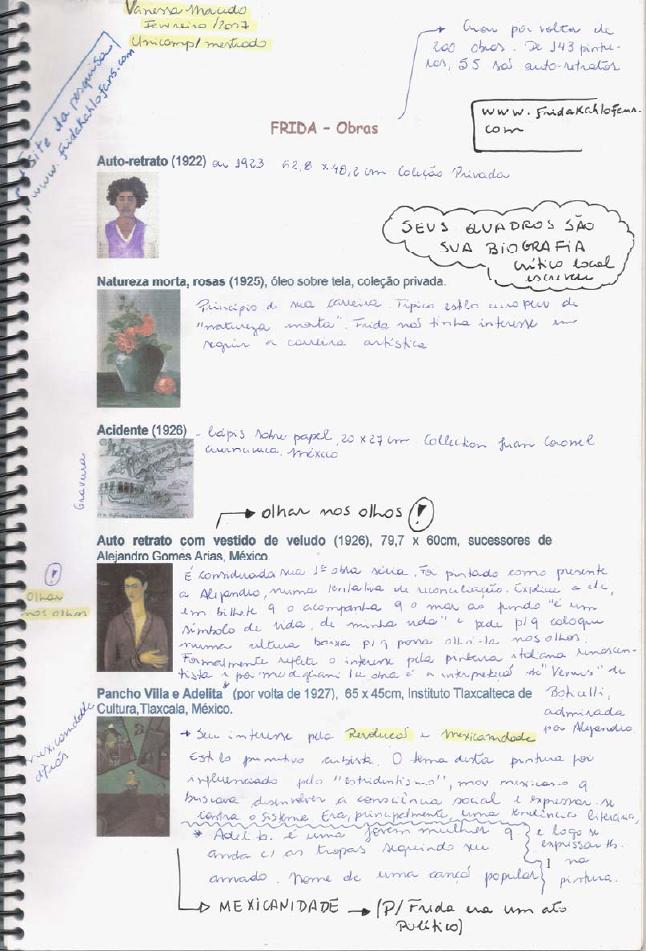 Vanessa Macedo
Fevereiro/2017
Unicamp/mestrado
Criou por volta de
200 obras. De 143 pintu-
ras, 55 são auto-retratos
Site da pesquisa
www.fridakahlofans.com
www.fridakahlofans.
com
FRIDA – Obras
Auto-retrato (1922) ou 1923 62,8 x 48,2 cm Coleção Privada
SEUS QUADROS SÃO
SUA BIOGRAFIA
crítico local
escreveu
Natureza morta, rosas (1925), óleo sobre tela, coleção privada.
Princípio de sua carreira. Típico estilo europeu de
"natureza morta". Frida não tinha interesse em
seguir a carreira artística
Acidente (1926) - lápis sobre papel, 20 x 27 cm Collection Juan Coronel
Cuernavaca. México
Gravura
olhar nos olhos !
Auto retrato com vestido de veludo (1926), 79,7 x 60cm, sucessores de
Alejandro Gomes Arias, México
!
Olhar
nos olhos
É considerada sua 1ª obra séria. Foi pintado como presente
a Alejandro, numa tentativa de reconciliação. Explica a ele,
em bilhete q o acompanha q o mar ao fundo "é um
símbolo de vida, de minha vida" e pede p/ q coloque
numa altura baixa p/ q possa olhá-la nos olhos.
Formalmente reflete o interesse pela pintura italiana renascen-
tista e por Modigliani. la obra é a interpretação de "Venus" de
Boticelli,
admirada
por Alejandro.
Pancho Villa e Adelita* (por volta de 1927), 65 x 45cm, Instituto Tlaxcalteca de
Cultura,Tlaxcala, México.
mexicanidade
atrás
Seu interesse pela Revolução e Mexicanidade
Estilo primitivo cubista. O tema desta pintura foi
influenciado pelo "estridentismo", mov mexicano q
buscava desenvolver a consciência social e expressar-se
contra o sistema. Era, principalmente, uma tendência literária,
e logo se
expressar tb.
na
pintura.
* Adelita é uma jovem mulher q
anda c/ as tropas seguindo seu
amado. Nome de uma canção popular
1
MEXICANIDADE → (P/ Frida era um ato
Político)